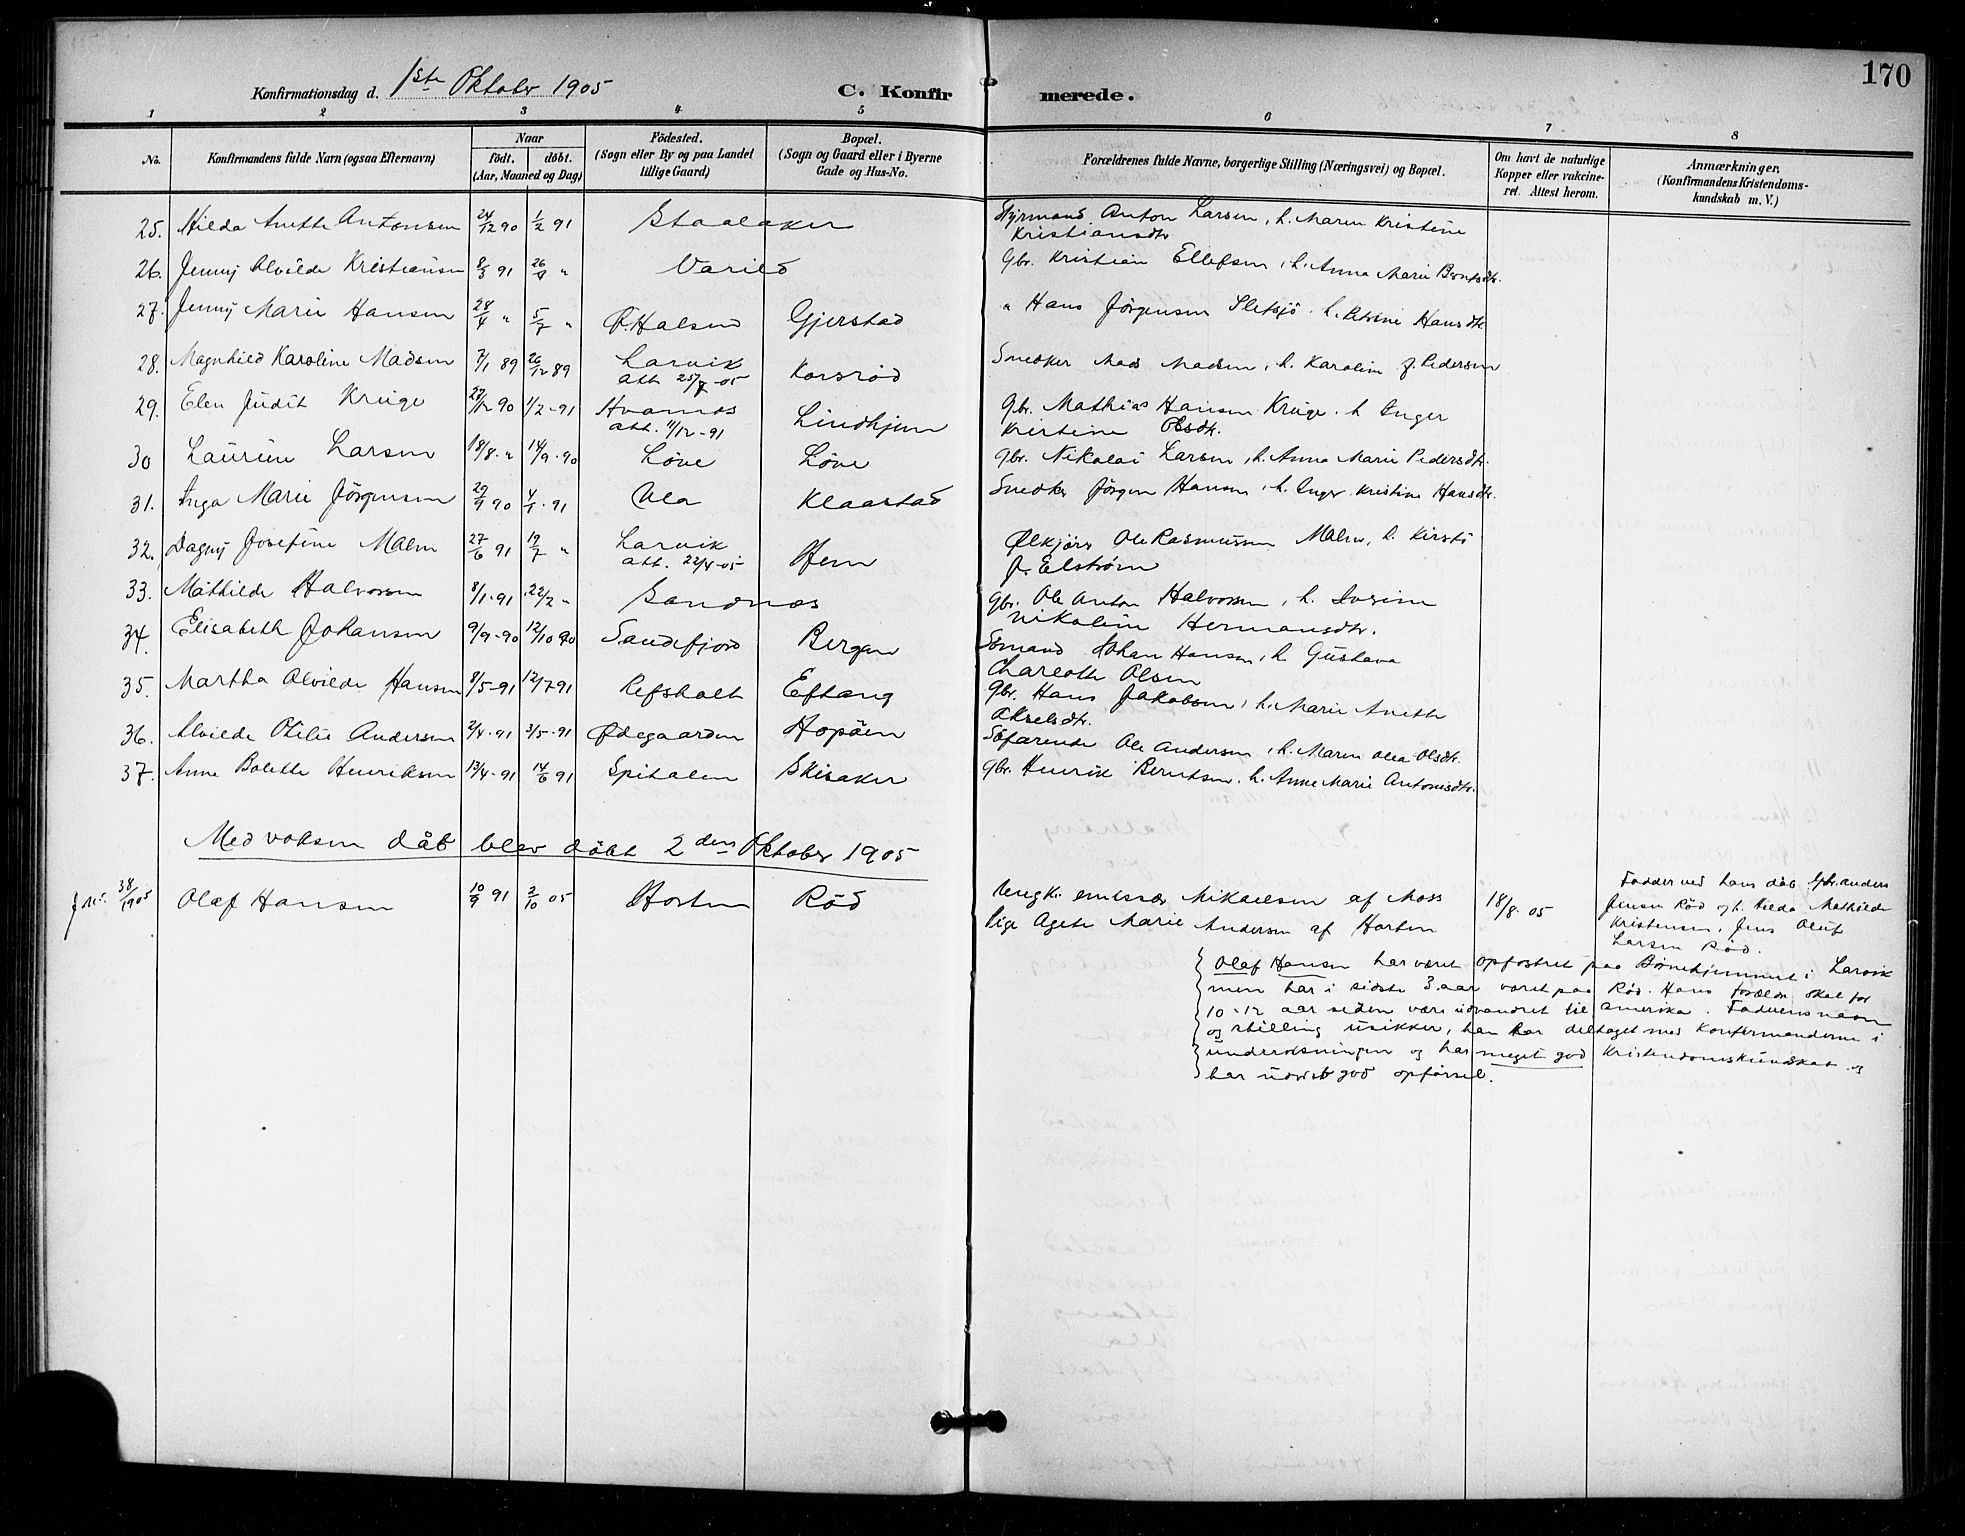 170
Konfirmationsdag d. 1ste Oktober 1905
C. Konfirmerede.
1 2 3 4 5 6 7 8
No.
Konfirmandens fulde Navn (ogsaa Efternavn)
Naar
födt. döbt.
(Aar, Maaned og Dag)
Födested.
(Sogn eller By og paa Landet
tillige Gaard)
Bopæl.
(Sogn og Gaard eller i Byerne
Gade og Hus-No.
Forældrenes fulde Navne, borgerlige Stilling (Næringsvei) og Bopæl.
Om havt de naturlige
Kopper eller vakcine-
ret. Attest herom.
Anmærkninger,
(Konfirmandens Kristendoms-
kundskab m. V.)
25. Hilda Anette Antonsen 24/12 90 1/2 91 Staalaker Styrmand Anton Larsen, h. Maren Kristine
Kristiansdtr
26. Jenny Alvilde Kristiansen 8/3 91 26/4 " Varild Gbr. Kristian Ellefsen, h. Anna Marie Berntsdtr.
27. Jenny Marie Hansen 28/4 " 5/7 " Ø. Halsen Gjerstad " Hans Jörgensen Sletsjö. h. Petrine Hansdtr
28. Magnhild Karoline Madsen 7/1 89 26/12 89 Larvik Korsröd Snedker Mads Madsen, h. Karoline f. Pedersen
att. 25/7-05
29. Elen Judit Krüge 27/12 90 1/2-91 Hvarnes Lindhjem Gbr. Mathias Hansen Krüge. h Inger
att. 11/12-91 Kristine Olsdtr.
30 Laurine Larsen 18/8. " 14/9-90 Löve Löve gbr. Nikolai Larsen, h. Anna Marie Pedersdtr.
31. Inga Marie Jörgensen 29/9 90 4/1. 91 Ula Klaastad Snedker Jörgen Hansen, h. Inger Kristine Hansdtr.
32. Dagny Josefine Malm 27/6 91 19/7 " Larvik Hem Ølkjörer Ole Rasmussen Malm, h. Kirsti
att. 22/4-05 f. Elström
33. Mathilde Halvorsen 8/1-91 22/2 " Sandnæs gbr. Ole Anton Halvorsen, h. Iverine
Nikoline Hermansdtr.
34. Elisabeth Johansen 9/9-90 12/10 90 Sandefjord Bergan Sömand Johan Hansen, h. Gustava
Charlotte Olsen
35. Martha Alvilde Hansen 8/5-91 12/7 91 Refsholt Eftang gbr. Hans Jakobsen, h. Marie Anette
Akselsdtr.
36. Alvilde Otilie Andersen 2/4-91 3/5-91 Ødegaarden Hopöen Söfarende Ole Andersen, h. Maren Olea Olsdtr.
37. Anne Bolette Henriksen 13/4-91 14/6 91 Spitalen Skisaker gbr. Henrik Berntsen. h. Anne Marie Antonisdtr.
Med voksen dåb blev döbt 2den Oktober 1905
Jnr. 38/1905 Olaf Hansen 10/9 91 2/10 05 Horten Röd emissær Mikaelsen af Moss 18/8. 05
Pige Agete Marie Andersen af Horten
Fadder ved hans dåb Gbr. Anders
Jensen Röd og h. Hilda Mathilde
Kristensen, Jens Oluf
Larsen Röd.
Olaf Hansen har været opfostret paa Börnehjemmet i Larvik
men har i sidste 3 aar været paa Röd. Hans forældre skal for
10-12 aar siden være udvandret til Amerika. Faderens navn
og stilling usikker, han har deltaget med konfirmanderne i
undervisningen og har meget god Kristendomskundskab og
har udvist god opförsel.